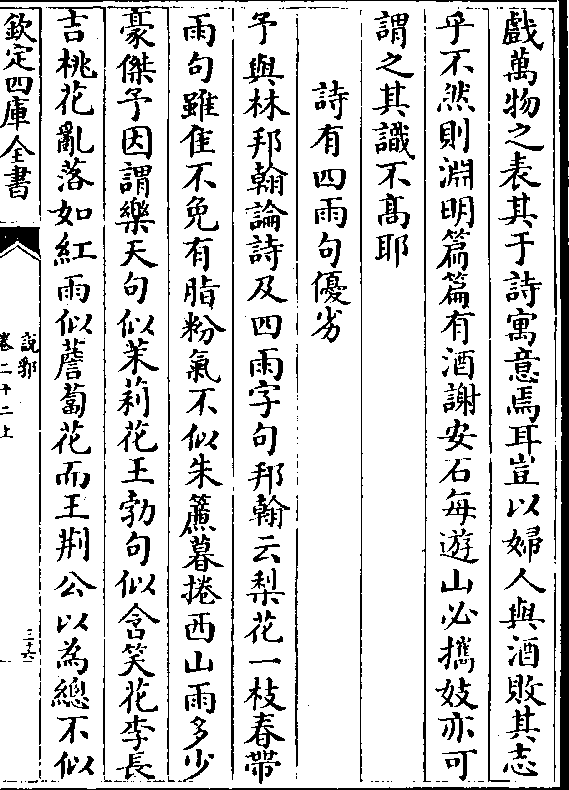 戲萬物之表其于詩寓意焉耳豈以婦人與酒敗其志
乎不然則淵明篇篇有酒謝安石每遊山必攜妓亦可
謂之其識不高耶
詩有四雨句優劣
予與林邦翰論詩及四雨字句邦翰云梨花一枝春帶
雨句雖佳不免有脂粉氣不似朱簾暮捲西山雨多少
豪傑予因謂樂天句似茉莉花王勃句似含笑花李長
吉桃花亂落如紅雨似薝蔔花而王荆公以為總不似
欽定四庫全書
說郛
卷二十二上